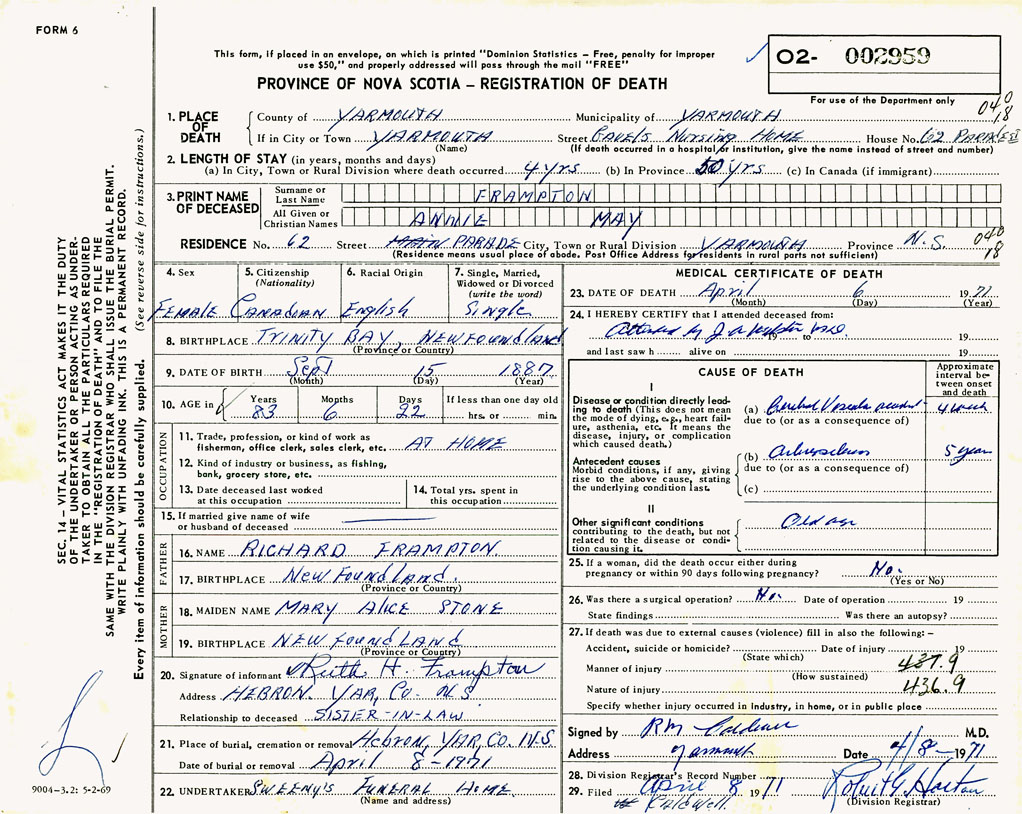 FORM 6
This form, if placed in an envelope, on which is printed "Dominion Statistics – Free, penalty for improper
use $50," and properly addressed will pass through the mail "FREE"
PROVINCE OF NOVA SCOTIA – REGISTRATION OF DEATH
O2- 002959
For use of the Department only
040
18
1. PLACE OF DEATH
County of YARMOUTH Municipality of YARMOUTH
If in City or Town YARMOUTH Street Nursing Home House No. 62 PARADE ST
(Name) (If death occurred in a hospital or institution, give the name instead of street and number)
2. LENGTH OF STAY (in years, months and days)
(a) In City, Town or Rural Division where death occurred 4 yrs (b) In Province 50 yrs (c) In Canada (if immigrant)
3. PRINT NAME OF DECEASED
Surname or Last Name FRAMPTON
All Given or Christian Names ANNIE MAY
RESIDENCE No. 62 Street MAIN PARADE City, Town or Rural Division YARMOUTH Province N.S. 040
18
(Residence means usual place of abode. Post Office Address for residents in rural parts not sufficient)
4. Sex
Female
5. Citizenship (Nationality)
Canadian
6. Racial Origin
English
7. Single, Married, Widowed or Divorced (write the word)
Single
8. BIRTHPLACE TRINITY BAY, NEWFOUNDLAND
(Province or Country)
9. DATE OF BIRTH Sept 15 1887
(Month) (Day) (Year)
10. AGE in Years Months Days If less than one day old
83 6 22 hrs. or min.
OCCUPATION
11. Trade, profession, or kind of work as fisherman, office clerk, sales clerk, etc. AT HOME
12. Kind of industry or business, as fishing, bank, grocery store, etc.
13. Date deceased last worked at this occupation
14. Total yrs. spent in this occupation
15. If married give name of wife or husband of deceased
FATHER
16. NAME RICHARD FRAMPTON
17. BIRTHPLACE NewFoundland.
(Province or Country)
MOTHER
18. MAIDEN NAME MARY ALICE STONE
19. BIRTHPLACE NEWFOUNDLAND
(Province or Country)
20. Signature of informant Ruth H. Frampton
Address HEBRON. YAR. Co. N.S
Relationship to deceased SISTER-IN-LAW
21. Place of burial, cremation or removal Hebron, YAR. Co. N.S
Date of burial or removal April 8-1971
22. UNDERTAKER SWEENY'S FUNERAL HOME
(Name and address)
MEDICAL CERTIFICATE OF DEATH
23. DATE OF DEATH April 6 1971
(Month) (Day) (Year)
24. I HEREBY CERTIFY that I attended deceased from:
Attended by J.A. 19 to 19
and last saw h alive on 19
CAUSE OF DEATH
Approximate interval between onset and death
I
Disease or condition directly leading to death (This does not mean the mode of dying, e.g., heart failure, asthenia, etc. It means the disease, injury, or complication which caused death.)
(a) Cerebral Vascular accident 4 week
due to (or as a consequence of)
Antecedent causes
Morbid conditions, if any, giving rise to the above cause, stating the underlying condition last.
(b) 5 years
due to (or as a consequence of)
(c)
II
Other significant conditions contributing to the death, but not related to the disease or condition causing it.
Old age
25. If a woman, did the death occur either during pregnancy or within 90 days following pregnancy? No.
(Yes or No)
26. Was there a surgical operation? No. Date of operation 19
State findings Was there an autopsy?
27. If death was due to external causes (violence) fill in also the following: –
Accident, suicide or homicide? Date of injury 19
(State which)
Manner of injury 437.9
(How sustained)
Nature of injury 436.9
Specify whether injury occurred in industry, in home, or in public place
Signed by RM Caldwell M.D.
Address Yarmouth Date 4/8-1971
28. Division Registrar's Record Number
29. Filed April 8 1971 Robert G Horton
Caldwell. (Division Registrar)
SEC. 14 – VITAL STATISTICS ACT MAKES IT THE DUTY
OF THE UNDERTAKER OR PERSON ACTING AS UNDERTAKER TO OBTAIN ALL THE PARTICULARS REQUIRED
IN THE "REGISTRATION OF DEATH" AND TO FILE THE
SAME WITH THE DIVISION REGISTRAR WHO SHALL ISSUE THE BURIAL PERMIT.
WRITE PLAINLY WITH UNFADING INK. THIS IS A PERMANENT RECORD.
Every item of information should be carefully supplied. (See reverse side for instructions.)
9004-3.2: 5-2-69